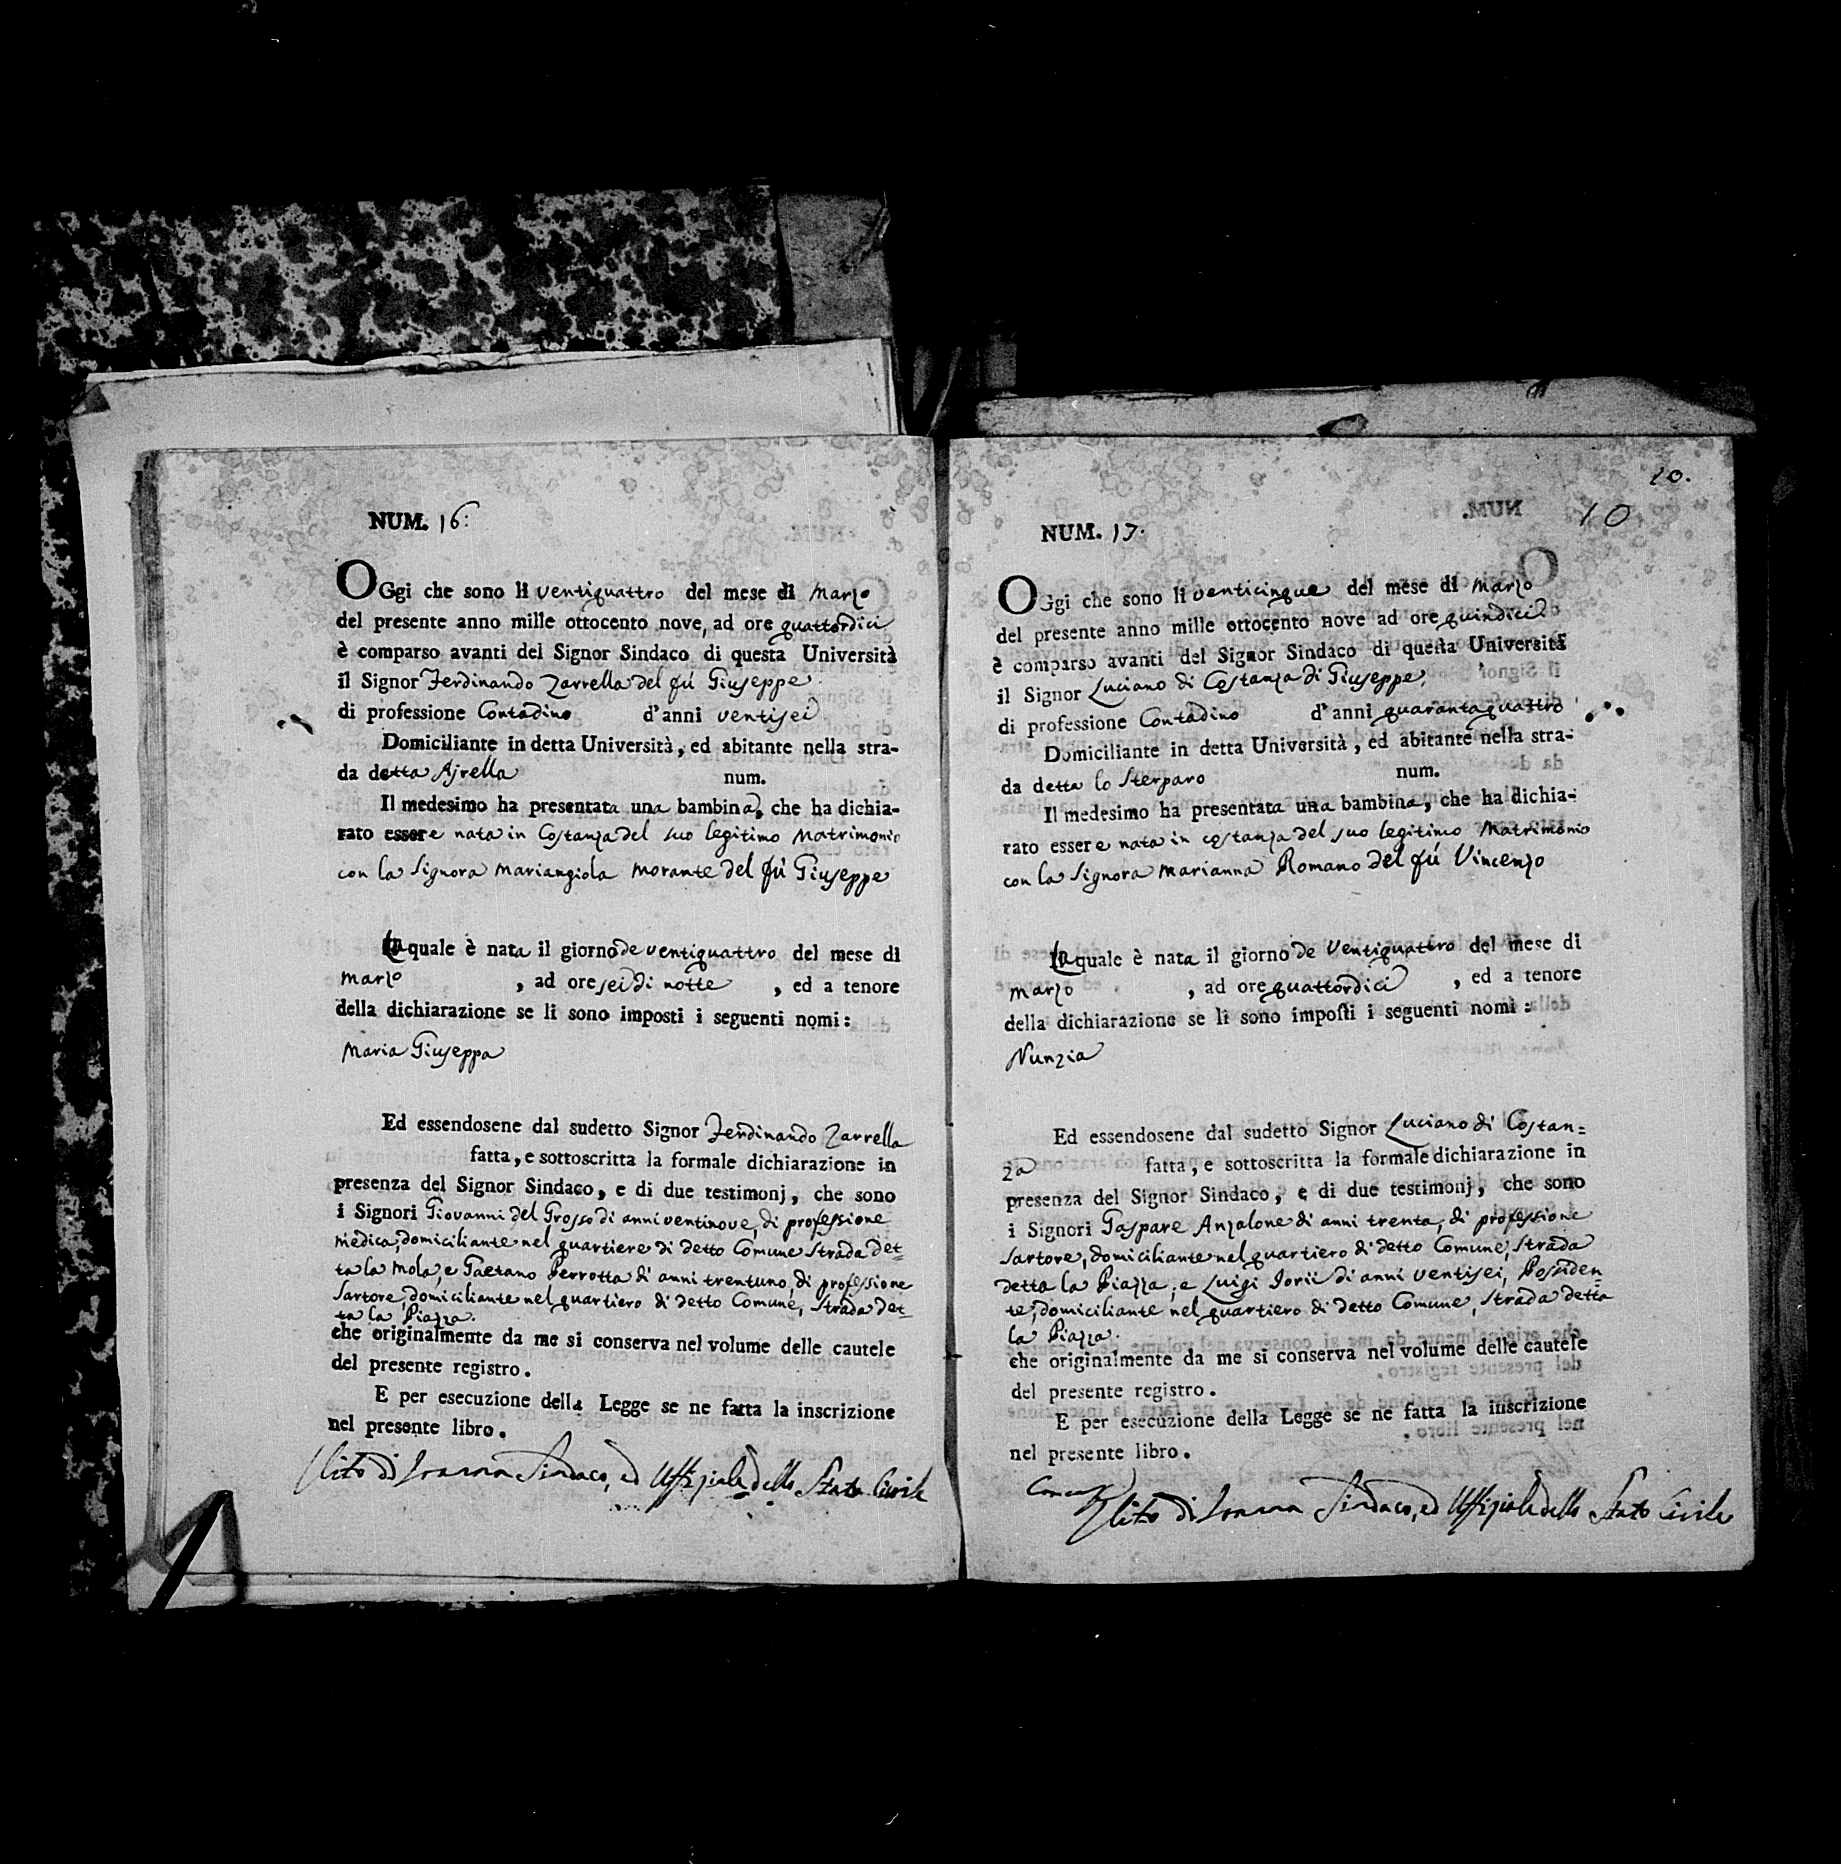 NUM. 16:
OGgi che sono li ventiquattro del mese di Marzo
del presente anno mille ottocento nove, ad ore quattordici
è comparso avanti del Signor Sindaco di questa Università
il Signor Ferdinando Zarrella del fù Giuseppe
di professione Contadino d'anni ventisei
Domiciliante in detta Università, ed abitante nella stra-
da detta Ajrella num.
Il medesimo ha presentata una bambina, che ha dichia-
rato essere nata in Costanza del suo legitimo Matrimonio
con la Signora Mariangiola Morante del fù Giuseppe
La quale è nata il giorno de ventiquattro del mese di
Marzo , ad ore sei di notte , ed a tenore
della dichiarazione se li sono imposti i seguenti nomi:
Maria Giuseppa
Ed essendosene dal sudetto Signor Ferdinando Zarrella
fatta, e sottoscritta la formale dichiarazione in
presenza del Signor Sindaco, e di due testimonj, che sono
i Signori Giovanni del Grosso di anni ventinove, di professione
Medica, domiciliante nel quartiere di detto Comune Strada det=
ta la Mola, e Gaetano Perrotta di anni trentuno, di professione
Sartore, domiciliante nel quartiero di detto Comune, Strada det=
ta la Piazza.
che originalmente da me si conserva nel volume delle cautele
del presente registro.
E per esecuzione della Legge se ne fatta la inscrizione
nel presente libro.
Vito di Sindaco, ed Uffiziale dello Stato Civile
10.
10
NUM. 17.
OGgi che sono li venticinque del mese di Marzo
del presente anno mille ottocento nove ad ore quindici
è comparso avanti del Signor Sindaco di questa Università
il Signor Luciano di Costanza di Giuseppe
di professione Contadino d'anni quarantaquattro
Domiciliante in detta Università, ed abitante nella stra-
da detta lo Sterparo num.
Il medesimo ha presentata una bambina, che ha dichia-
rato essere nata in costanza del suo legitimo Matrimonio
con la Signora Marianna Romano del fù Vincenzo
La quale è nata il giorno de Ventiquattro del mese di
Marzo , ad ore quattordici , ed a tenore
della dichiarazione se li sono imposti i seguenti nomi:
Nunzia
Ed essendosene dal sudetto Signor Luciano di Costan=
za fatta, e sottoscritta la formale dichiarazione in
presenza del Signor Sindaco, e di due testimonj, che sono
i Signori Gaspare Anzalone di anni trenta, di professione
Sartore, domiciliante nel quartiero di detto Comune, Strada
detta la Piazza, e Luigi Iorii di anni ventisei, Possiden=
te, domiciliante nel quartiero di detto Comune, Strada detta
la Piazza.
che originalmente da me si conserva nel volume delle cautele
del presente registro.
E per esecuzione della Legge se ne fatta la inscrizione
nel presente libro.
Vito di Sindaco, ed Uffiziale dello Stato Civile